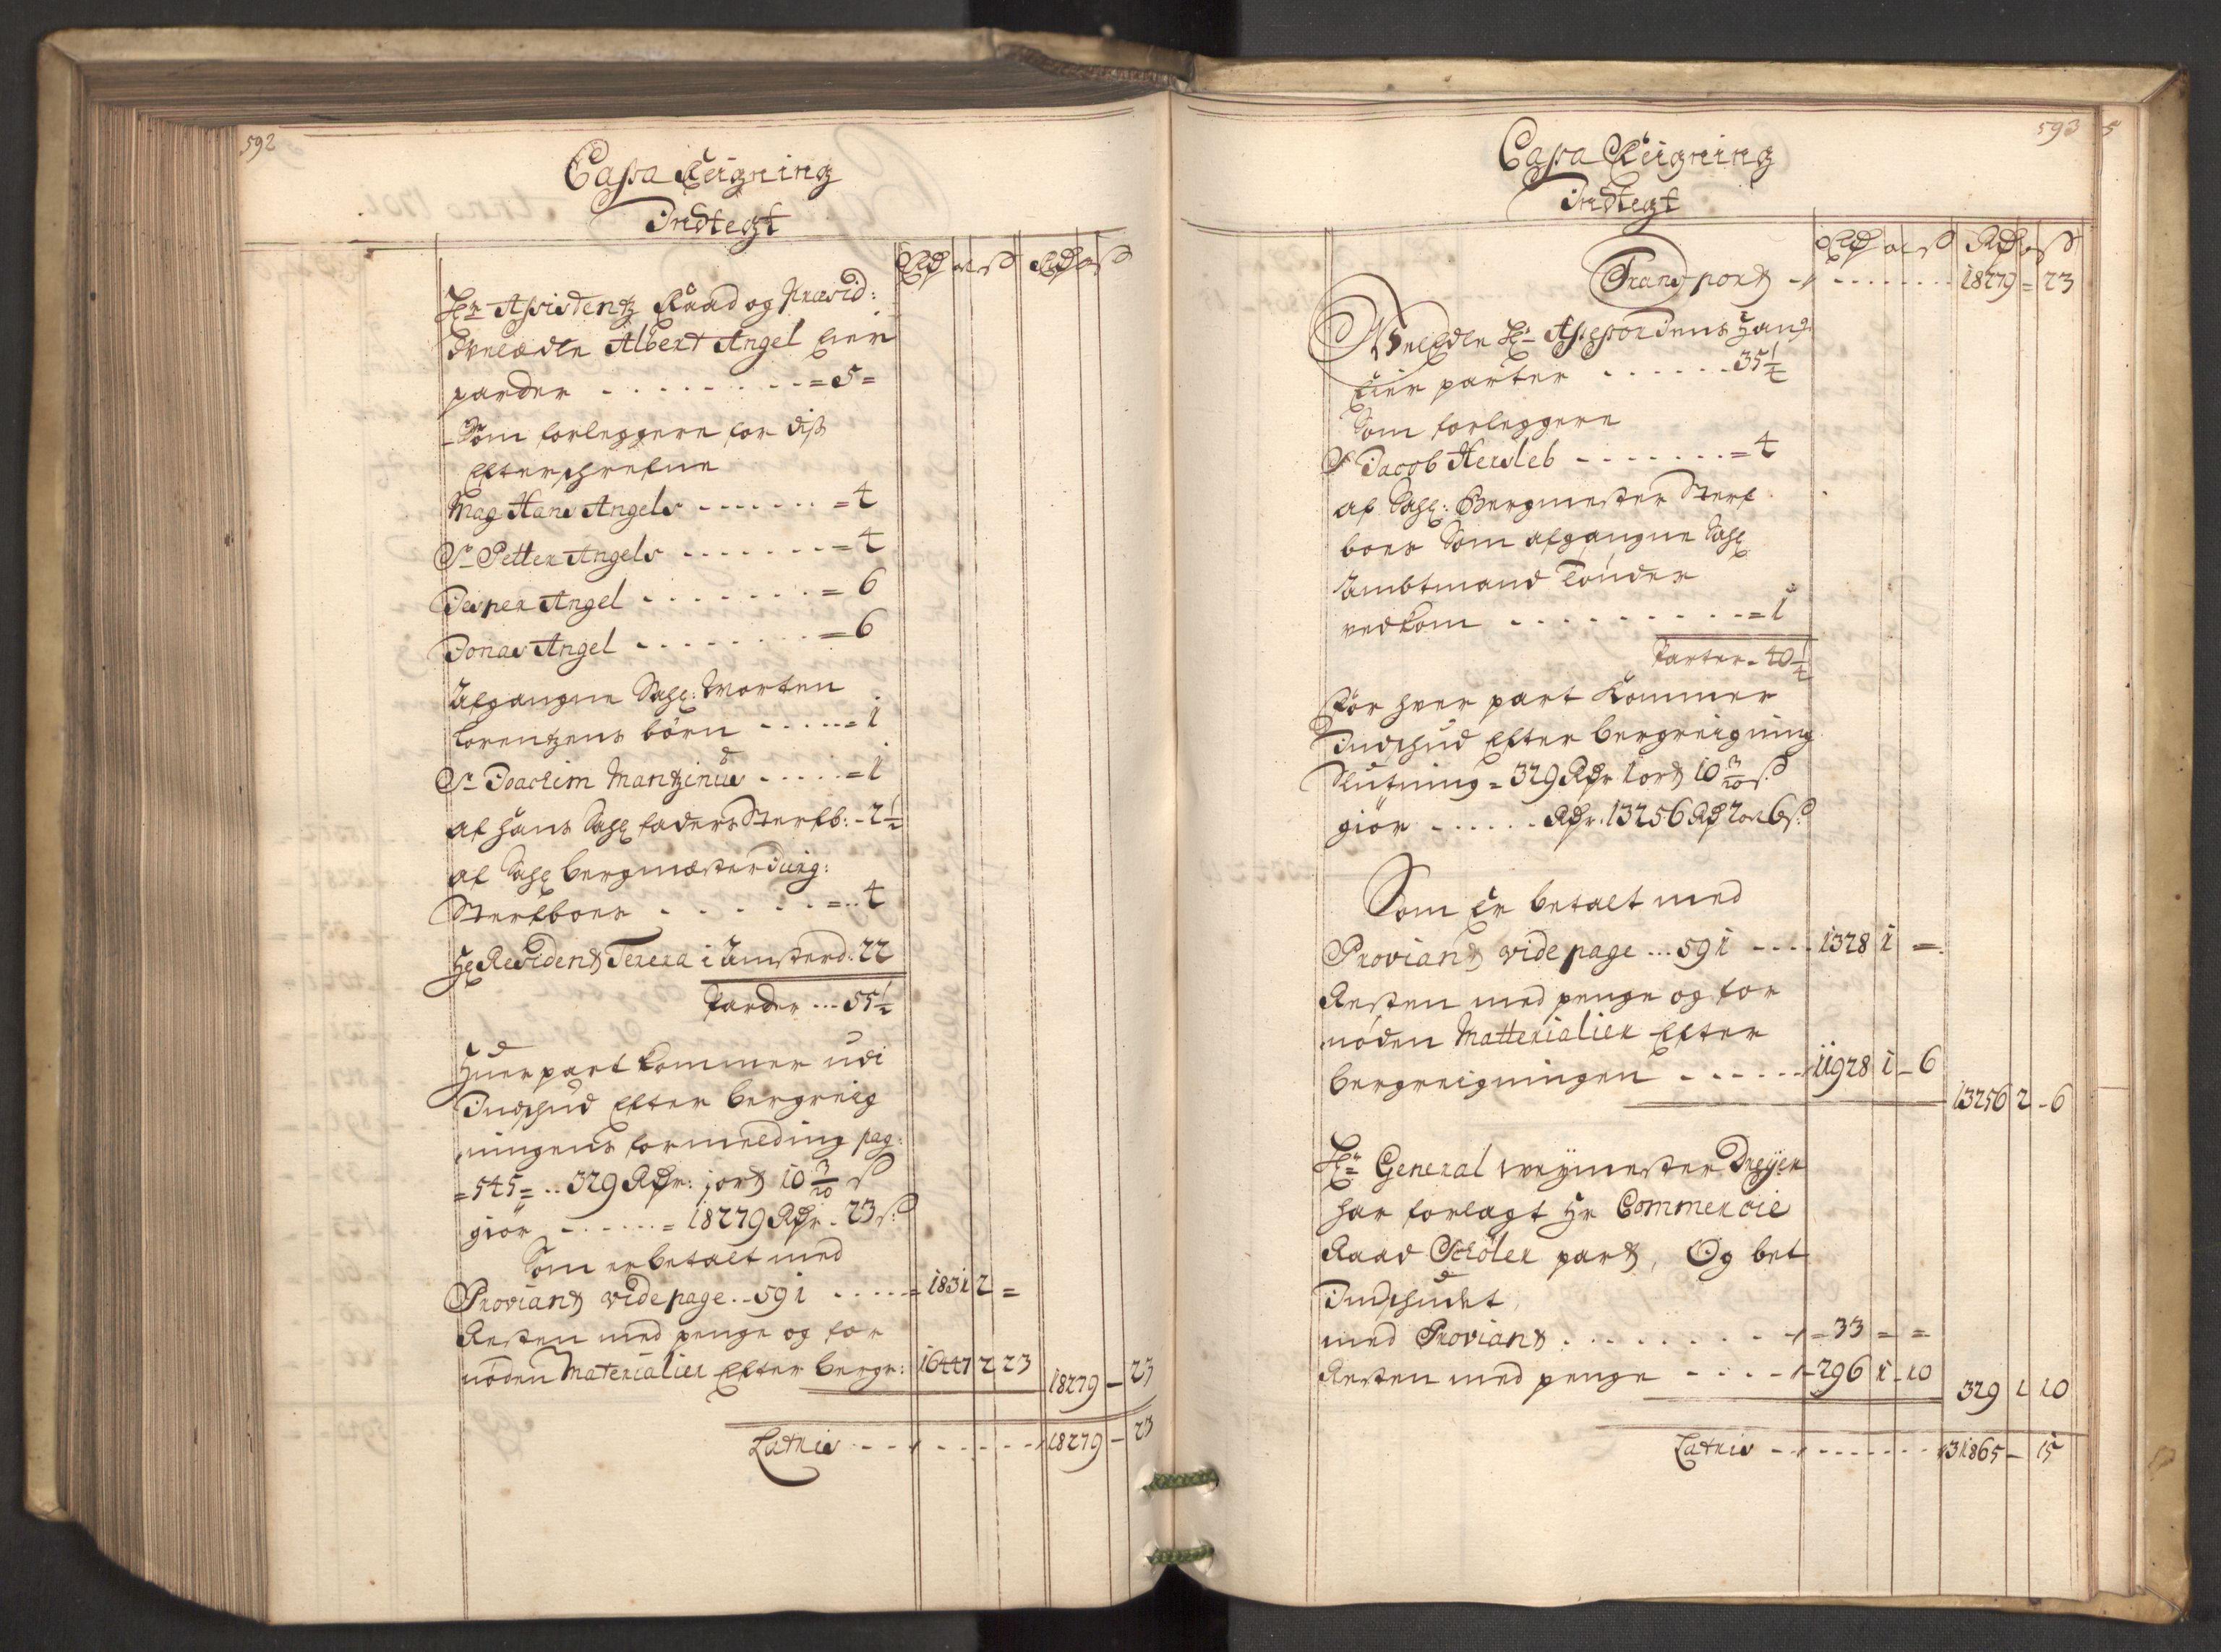 592
Cassa Reigning
Indtegt
Rd or ß Rd or ß
Hr. Assistentz Raad og Præsid:
Velædle Albert Angel Eier
parder - - - - - - - - = 5 =
Som forleggere for diß
Efterschrefne
Mag Hans Angels - - - - - - = 4
Sr. Petter Angels - - - - - - - = 4
Jesper Angel - - - - - - - = 6
Jonas Angel - - - - - - - = 6
Afgangne Sahl: Morten
Lorentzens börn - - - - - = 1
Sr. Joachim Mantzinus - - - - - = 1
af hans Sahl faders Sterfb: - 2½
af Sahl bergmester
Sterfboer - - - - - - = 4
Hr Resident Texera i Amsterd: 22
Parder ... 55½
Huer part kommer udi
Indschud Efter bergreig
ningens formelding pag:
= 545 = .. 329 Rdr: 1 ort 10 3/20 ß
giör - - - - - = 18279 Rdr - 23 ß:
Som er betalt med
Proviant vide page .. 591 - - - - - = 1831 2 =
Resten med penge og for
nöden Materialier Efter bergr: 16447 2 23
18279 - 23
Latris - - - - - - - - 18279 - 23
593
Cassa Reigning
Indtegt
Rd or ß Rd or ß
Transport - - - - - - - - 18279 = 23
VelEdle Hr Assessor Jens Hans:
Eier parter - - - - - - 35½
Som forleggere
Sr Jacob Hersleb - - - - - - - = 4
af Sahl: Bergmester Sterf
boer Som afgangne Sahl
Ambtmand Tønder
vedkom - - - - - - - - - = 1
Parter - 40½
För hver part kommer
Indschud Efter bergreigning
Slutning = 329 Rdr 1 ort 10 3/20 ß
giör - - - - - Rdr: 13256 Rd 2 or 6 ß:
Som Er betalt med
Proviant vide page ... 591 - - - - 1328 1 =
Resten med penge og for
nöden Matterialier Efter
bergreigningen - - - - - - 11928 1 - 6
13256 2 - 6
Hr General veymester Dreyer
har forlagt Hr Commercie
Raad Schöler part, Og bet
Indschudet
med Proviant . - - - - - - - = 33 = =
Resten med penge - - - - - 296 1 - 10
329 1 10
Latris - - - - - - - - 31865 - 15